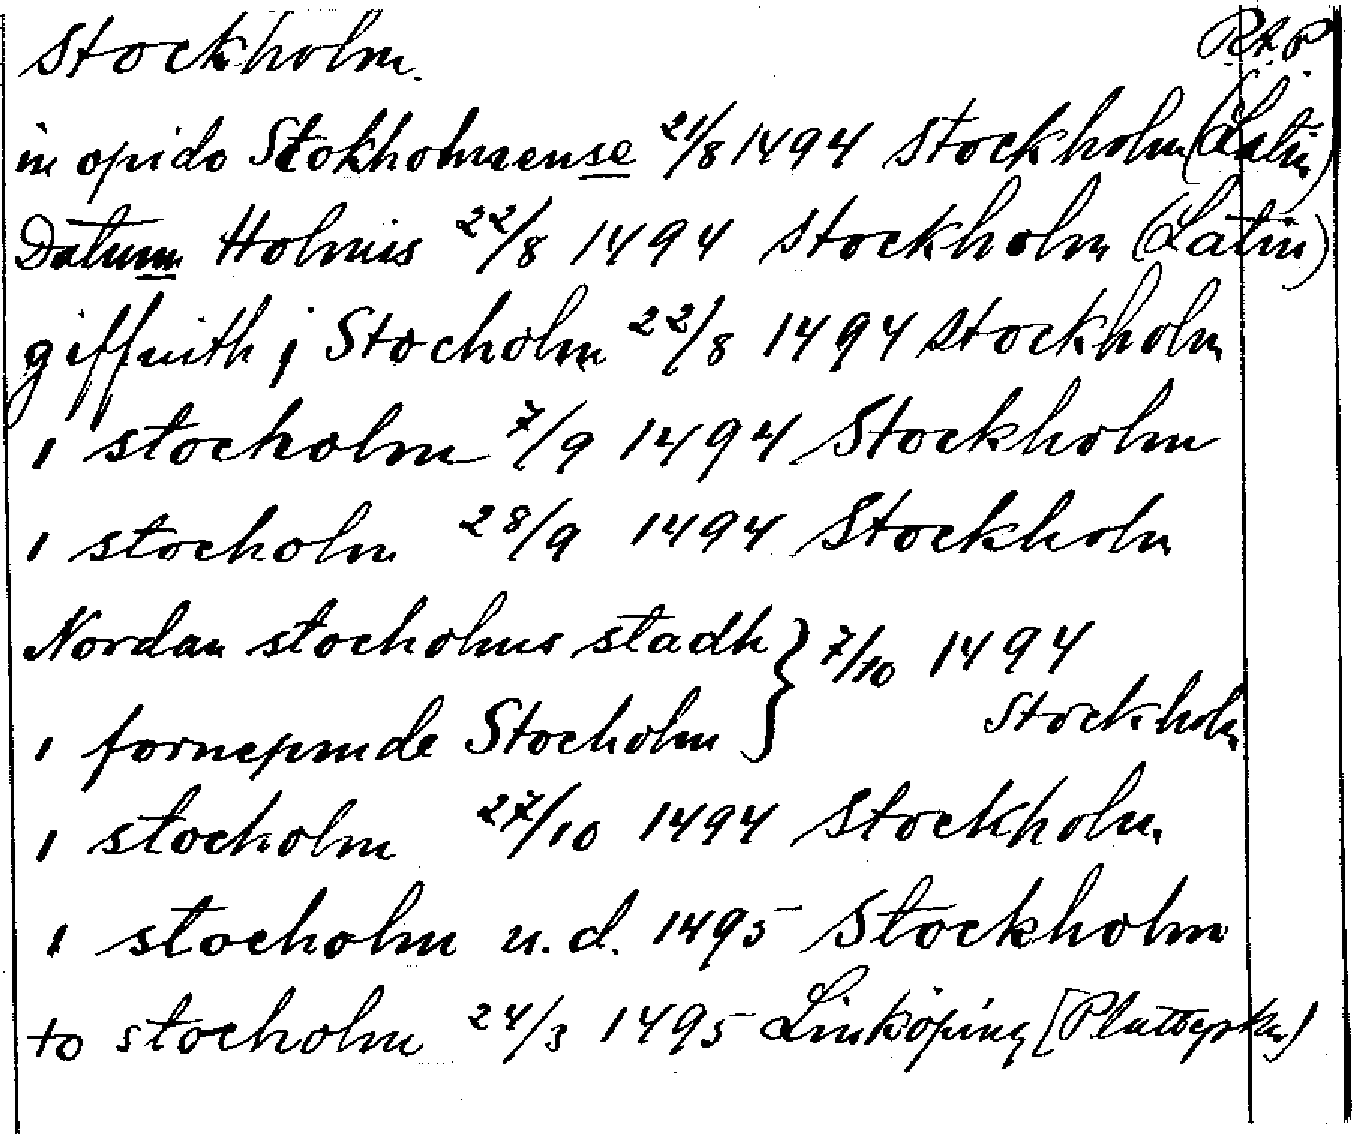 Stockholm. R.A.P.
in opido Stokholmense 21/8 1494 Stockholm (Latin)
Datum Holmis 22/8 1494 Stockholm (Latin)
giffuith j Stocholm 22/8 1494 Stockholm
i stocholm 7/9 1494 Stockholm
i stocholm 28/9 1494 Stockholm
Nordan stocholms stadh } 7/10 1494
i fornempnde Stocholm Stockholm
i stocholm 27/10 1494 Stockholm
i stocholm u.d. 1495 Stockholm
to stocholm 24/3 1495 Linköping (Plattyska)